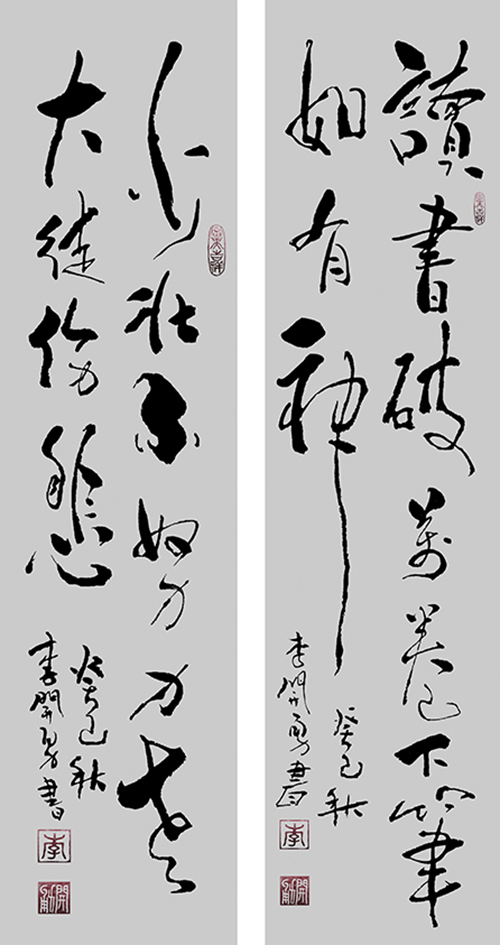 讀書破萬卷下筆
如有神
癸巳秋
李開勇書
李
少壯不努力老
大徒伤悲
癸巳秋
李開勇書
李